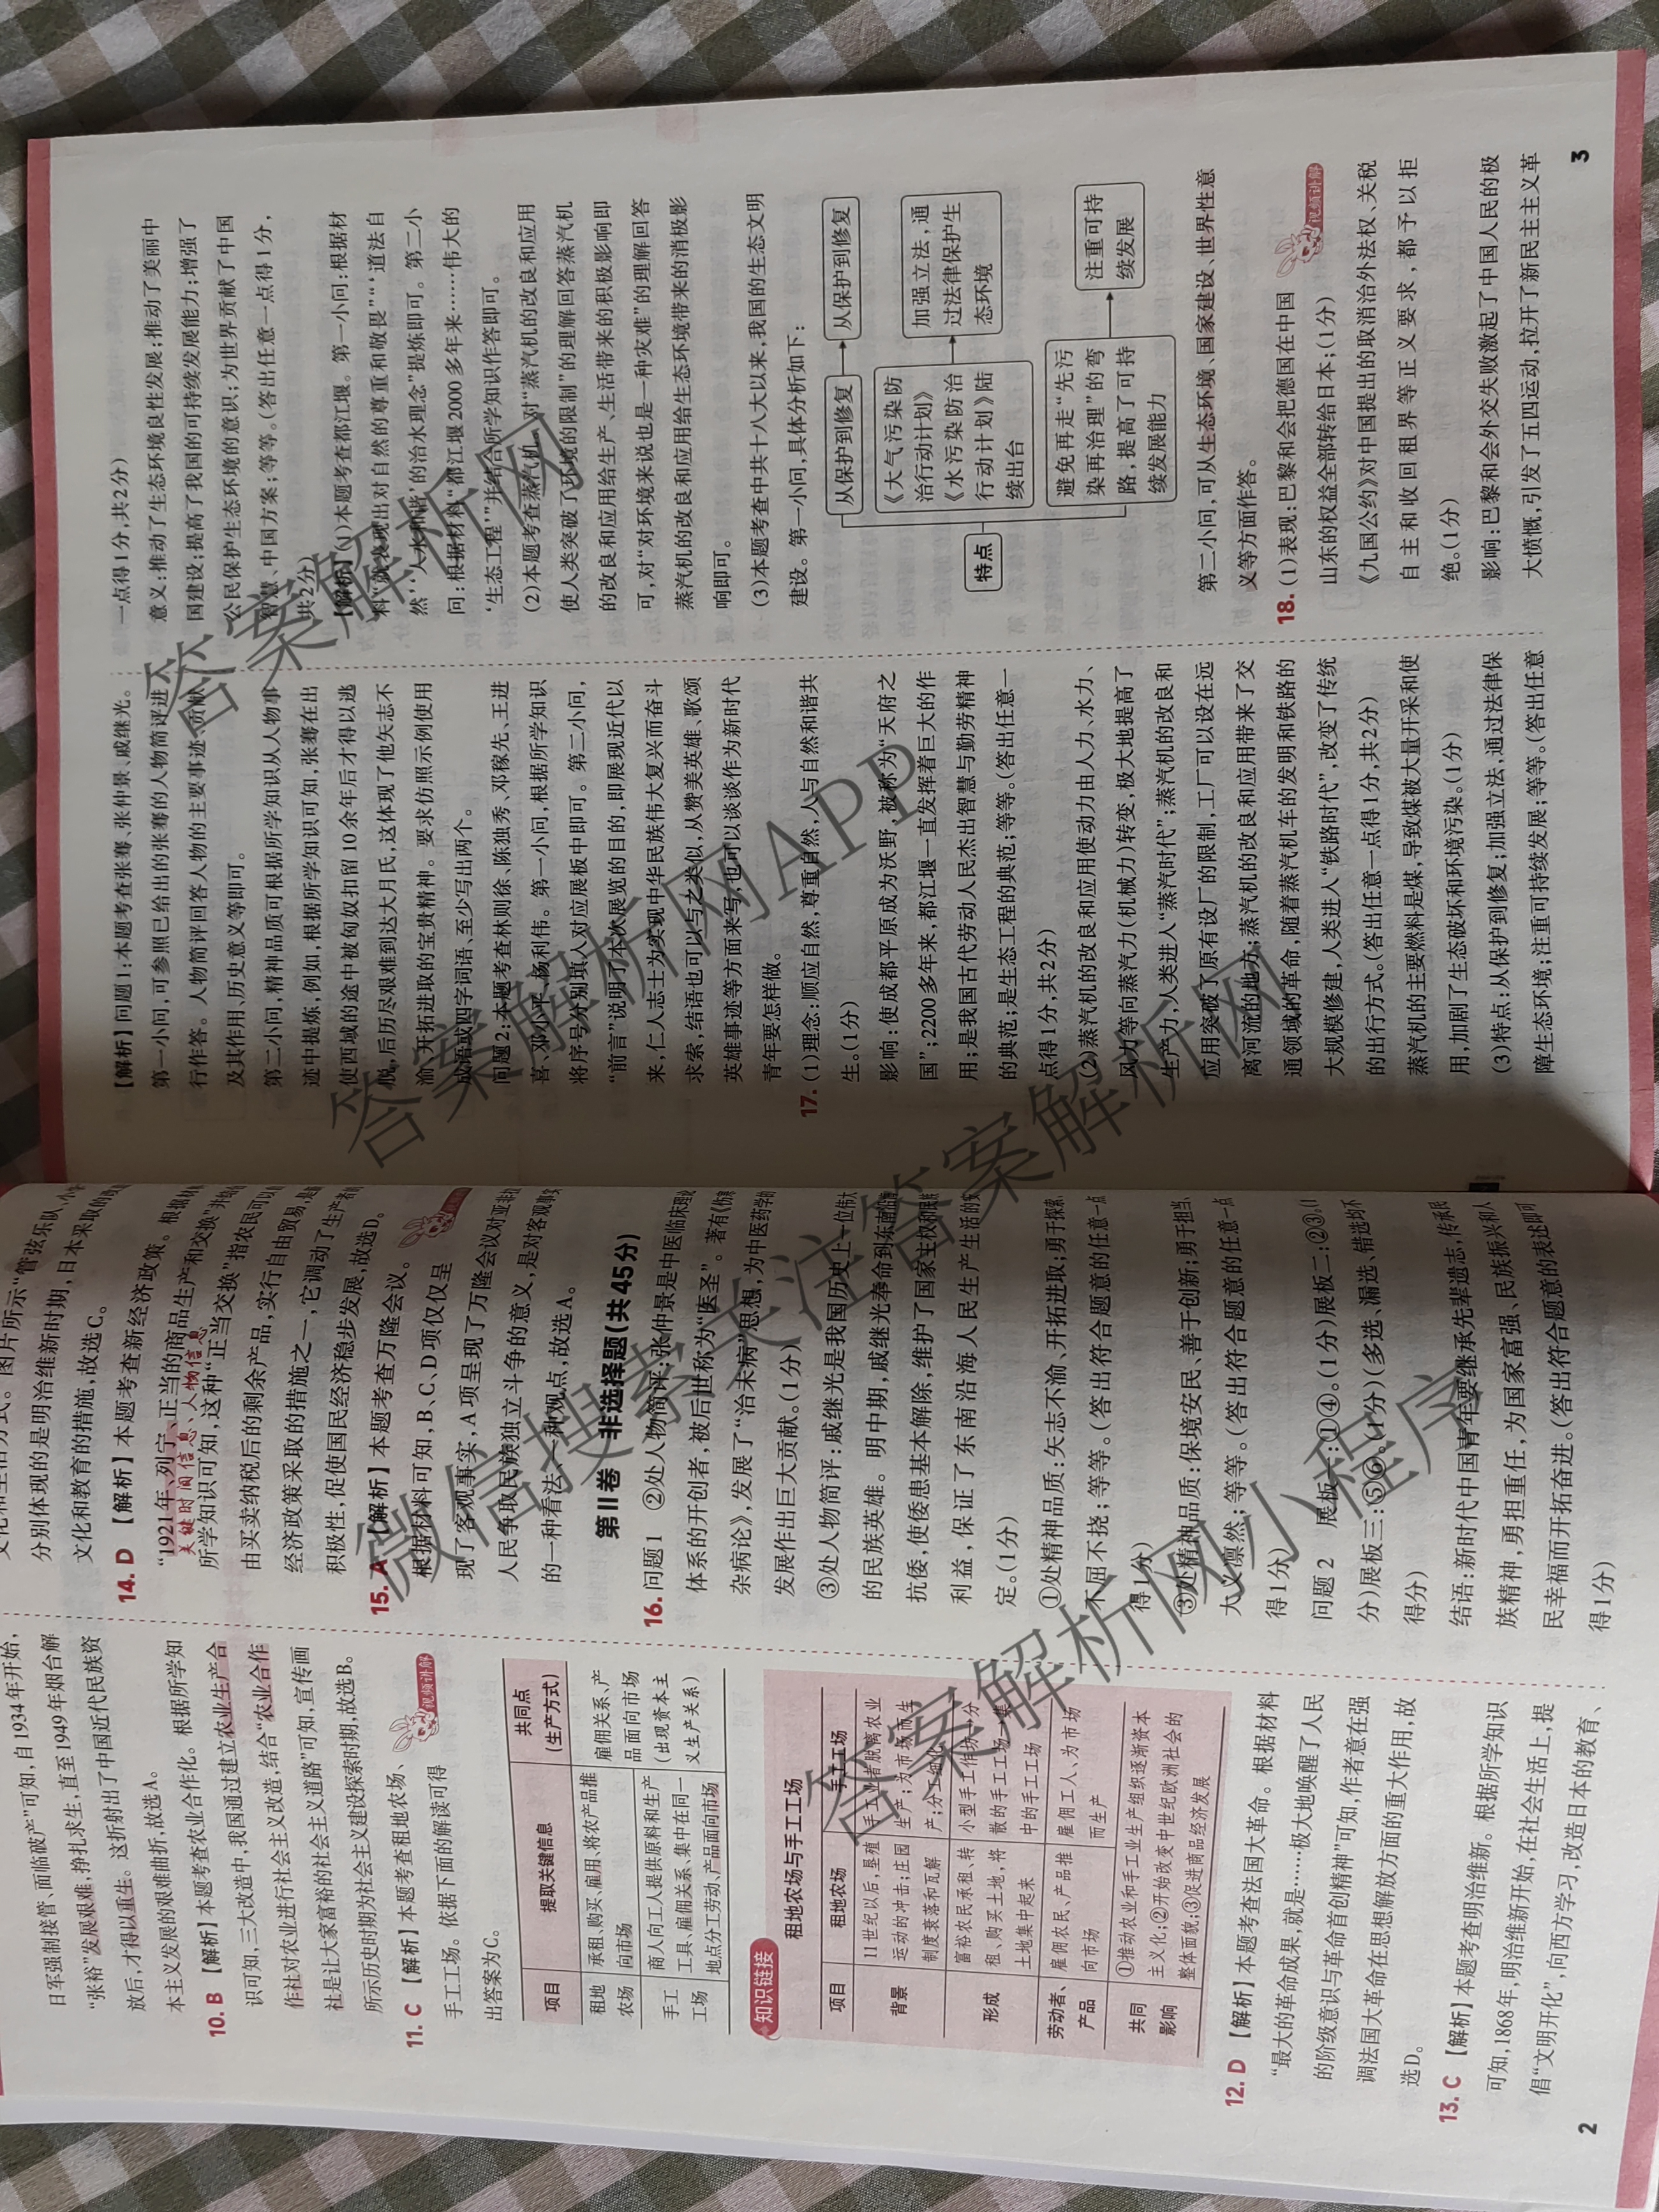 日军强制接管、面临破产”可知，自1934年开始，
“张裕”发展艰难，挣扎求生，直至1949年烟台解
放后，才得以重生。这折射出了中国近代民族资
本主义发展的艰难曲折，故选A。
10. B 【解析】本题考查农业合作化。根据所学知
识可知，三大改造中，我国通过建立农业生产合
作社对农业进行社会主义改造，结合“农业合作
社是让大家富裕的社会主义道路”可知，宣传画
所示历史时期为社会主义建设探索时期，故选B。
11. C 【解析】本题考查租地农场、
视频讲解
手工工场。依据下面的解读可得
出答案为C。
项目 提取关键信息 共同点（生产方式）
租地农场 承租、购买、雇用、将农产品推向市场
手工工场 商人向工人提供原料和生产工具、雇佣关系、集中在同一地点分工劳动、产品面向市场
雇佣关系、产品面向市场（出现资本主义生产关系）
知识链接
租地农场与手工工场
项目 租地农场 手工工场
背景 11世纪以后，垦殖运动的冲击；庄园制度衰落和瓦解 手工业者脱离农业生产，为市场而生产；分工细化
形成 富裕农民承租、转租、购买土地，将土地集中起来 小型手工作坊→分散的手工工场→集中的手工工场
劳动者、产品 雇佣农民、产品推向市场 雇佣工人、为市场而生产
共同影响 ①推动农业和手工业生产组织逐渐资本主义化；②开始改变中世纪欧洲社会的整体面貌；③促进商品经济发展
12. D 【解析】本题考查法国大革命。根据材料
“最大的革命成果，就是……极大地唤醒了人民
的阶级意识与革命首创精神”可知，作者意在强
调法国大革命在思想解放方面的重大作用，故
选D。
13. C 【解析】本题考查明治维新。根据所学知识
可知，1868年，明治维新开始，在社会生活上，提
倡“文明开化”，向西方学习，改造日本的教育、
2
图片所示“管弦乐队、小
分别体现的是明治维新时期，日本采取的
文化和教育的措施，故选C。
14. D 【解析】本题考查新经济政策。根据
“1921年、列宁、正当的商品生产和交换”并结
关键时间信息、人物信息
所学知识可知，这种“正当交换”指农民可以
由买卖纳税后的剩余产品，实行自由贸易，是
经济政策采取的措施之一，它调动了生产者
积极性，促使国民经济稳步发展，故选D。
15. A 【解析】本题考查万隆会议。
根据材料可知，B、C、D项仅仅呈
现了客观事实，A项呈现了万隆会议对亚非
人民争取民族独立斗争的意义，是对客观事
的一种看法、一种观点，故选A。
第Ⅱ卷 非选择题（共45分）
16. 问题1 ②处人物简评：张仲景是中医临床理
体系的开创者，被后世称为“医圣”。著有《伤寒
杂病论》，发展了“治未病”思想，为中医药学的
发展作出巨大贡献。（1分）
③处人物简评：戚继光是我国历史上一位伟大
的民族英雄。明中期，戚继光奉命到东南沿海
抗倭，使倭患基本解除，维护了国家主权和
利益，保证了东南沿海人民生产生活的安
定。（1分）
①处精神品质：矢志不渝、开拓进取；勇于探索、
不屈不挠；等等。（答出符合题意的任意一点
得1分）
③处精神品质：保境安民、善于创新；勇于担当、
大义凛然；等等。（答出符合题意的任意一点
得1分）
问题2 展板一：①④。（1分）展板二：②③。（1
分）展板三：⑤⑥。（1分）（多选、漏选、错选均不
得分）
结语：新时代中国青年要继承先辈遗志，传承民
族精神，勇担重任，为国家富强、民族振兴和人
民幸福而开拓奋进。（答出符合题意的表述即可
得1分）
【解析】问题1：本题考查张骞、张仲景、戚继光。
第一小问，可参照已给出的张骞的人物简评进
行作答。人物简评回答人物的主要事迹、贡献
及其作用、历史意义等即可。
第二小问，精神品质可根据所学知识从人物事
迹中提炼，例如，根据所学知识可知，张骞在出
使西域的途中被匈奴扣留10余年后才得以逃
脱，后历尽艰难到达大月氏，这体现了他矢志不
渝、开拓进取的宝贵精神。要求仿照示例使用
成语或四字词语、至少写出两个。
问题2：本题考查林则徐、陈独秀、邓稼先、王进
喜、邓小平、杨利伟。第一小问，根据所学知识
将序号分别填入对应展板中即可。第二小问，
“前言”说明了本次展览的目的，即展现近代以
来，仁人志士为实现中华民族伟大复兴而奋斗
求索，结语也可以与之类似，从赞美英雄、歌颂
英雄事迹等方面来写，也可以谈谈作为新时代
青年要怎样做。
17. （1）理念：顺应自然，尊重自然，人与自然和谐共
生。（1分）
影响：使成都平原成为沃野，被称为“天府之
国”；2200多年来，都江堰一直发挥着巨大的作
用；是我国古代劳动人民杰出智慧与勤劳精神
的典范；是生态工程的典范；等等。（答出任意一
点得1分，共2分）
（2）蒸汽机的改良和应用使动力由人力、水力、
风力等向蒸汽力（机械力）转变，极大地提高了
生产力，人类进入“蒸汽时代”；蒸汽机的改良和
应用突破了原有设厂的限制，工厂可以设在远
离河流的地方；蒸汽机的改良和应用带来了交
通领域的革命，随着蒸汽机车的发明和铁路的
大规模修建，人类进入“铁路时代”，改变了传统
的出行方式。（答出任意一点得1分，共2分）
蒸汽机的主要燃料是煤，导致煤被大量开采和使
用，加剧了生态破坏和环境污染。（1分）
（3）特点：从保护到修复；加强立法，通过法律保
障生态环境；注重可持续发展；等等。（答出任意
一点得1分，共2分）
意义：推动了生态环境良性发展；推动了美丽中
国建设；提高了我国的可持续发展能力；增强了
公民保护生态环境的意识；为世界贡献了中国
智慧、中国方案；等等。（答出任意一点得1分，
共2分）
【解析】（1）本题考查都江堰。第一小问：根据材
料“就表现出对自然的尊重和敬畏”“‘道法自
然’‘人水和谐’的治水理念”提炼即可。第二小
问：根据材料“都江堰2000多年来……伟大的
‘生态工程’”并结合所学知识作答即可。
（2）本题考查蒸汽机。对“蒸汽机的改良和应用
使人类突破了环境的限制”的理解回答蒸汽机
的改良和应用给生产、生活带来的积极影响即
可，对“对环境来说也是一种灾难”的理解回答
蒸汽机的改良和应用给生态环境带来的消极影
响即可。
（3）本题考查中共十八大以来，我国的生态文明
建设。第一小问，具体分析如下：
特点
从保护到修复 从保护到修复
《大气污染防治行动计划》《水污染防治行动计划》陆续出台 加强立法，通过法律保护生态环境
避免再走“先污染再治理”的弯路，提高了可持续发展能力 注重可持续发展
第二小问，可从生态环境、国家建设、世界性意
义等方面作答。
18. （1）表现：巴黎和会把德国在中国
视频讲解
山东的权益全部转给日本；（1分）
《九国公约》对中国提出的取消治外法权、关税
自主和收回租界等正义要求，都予以拒
绝。（1分）
影响：巴黎和会外交失败激起了中国人民的极
大愤慨，引发了五四运动，拉开了新民主主义革
3
答案解析网
答案解析网APP
微信搜索关注答案解析网
答案解析网小程序